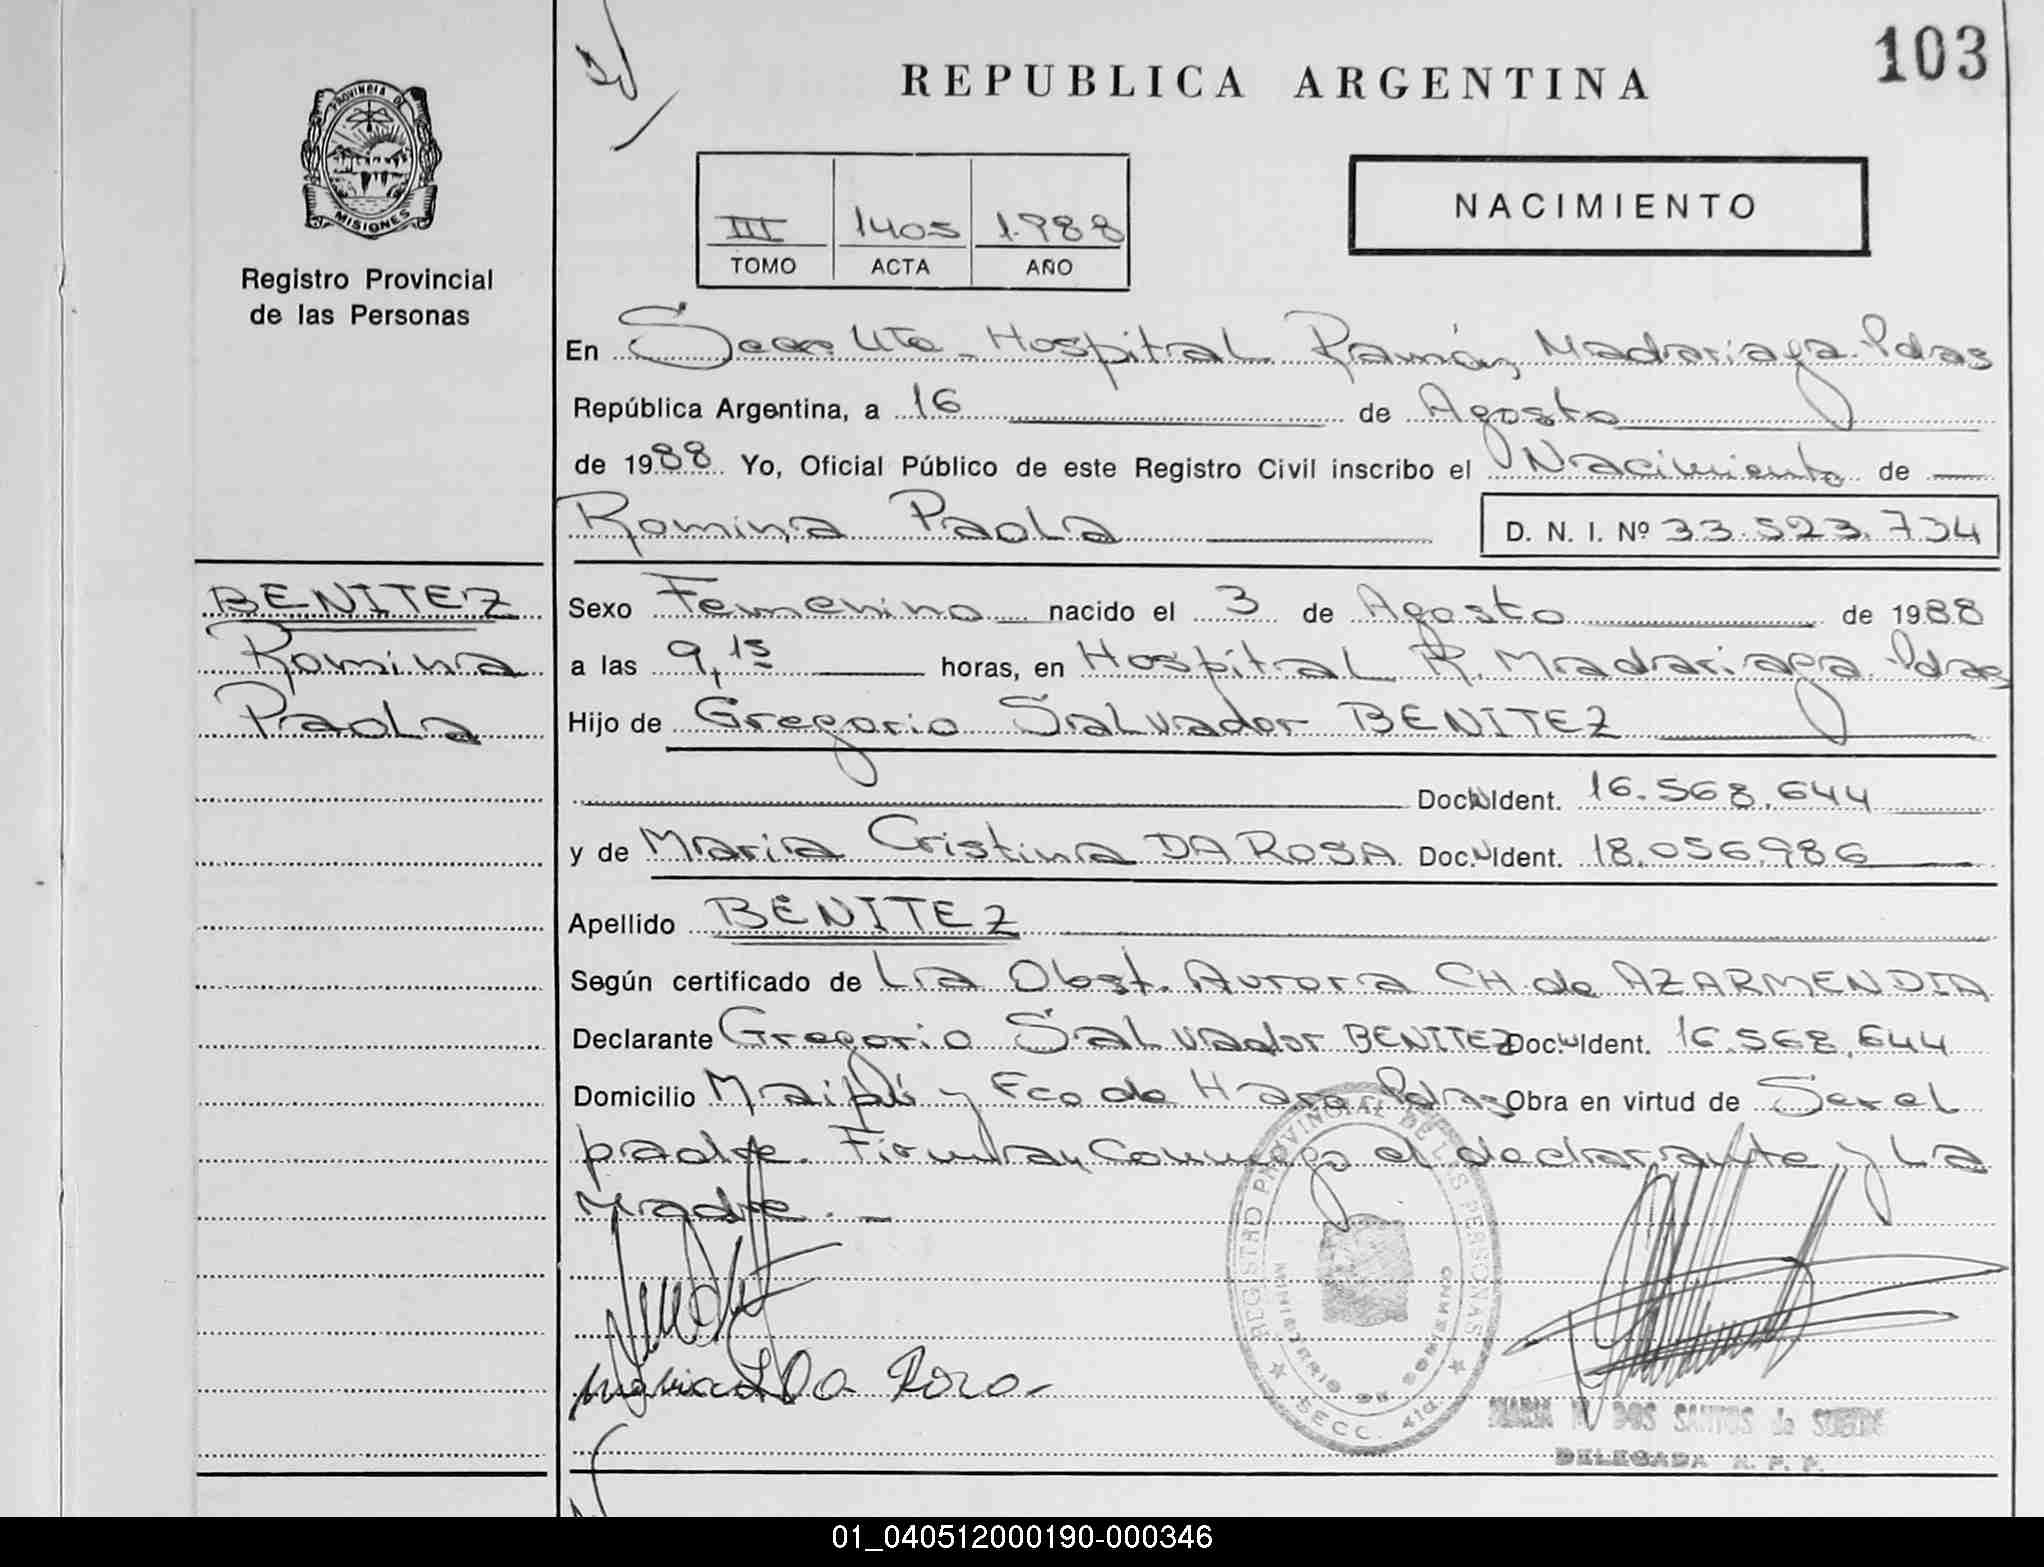 103
REPUBLICA ARGENTINA
PROVINCIA DE
MISIONES
Registro Provincial
de las Personas
NACIMIENTO
III 1405 1.988
TOMO ACTA AÑO
En Secc. 4ta. Hospital Ramón Madariaga. Pdas
República Argentina, a 16 de Agosto
de 1988 Yo, Oficial Público de este Registro Civil inscribo el Nacimiento de
Romina Paola
D. N. I. Nº 33.523.734
BENITEZ
Romina
Paola
Sexo Femenino nacido el 3 de Agosto de 1988
a las 9,15 horas, en Hospital R. Madariaga. Pdas
Hijo de Gregorio Salvador BENITEZ
Doc. Ident. 16.568.644
y de Maria Cristina DA ROSA Doc. Ident. 18.056.986
Apellido BENITEZ
Según certificado de La Obst. Aurora CH. de AZARMENDIA
Declarante Gregorio Salvador BENITEZ Doc. Ident. 16.568.644
Domicilio Maipú y Fco de Haro Pdas Obra en virtud de Ser el
padre. Firman Conmigo el declarante y La
Madre. _
REGISTRO PROVINCIAL DE LAS PERSONAS
MINISTERIO DE GOBIERNO
SECC. 4ta.
Maria Da Rosa
MARIA DOS SANTOS de
DELEGADA R. P. P.
01_040512000190-000346